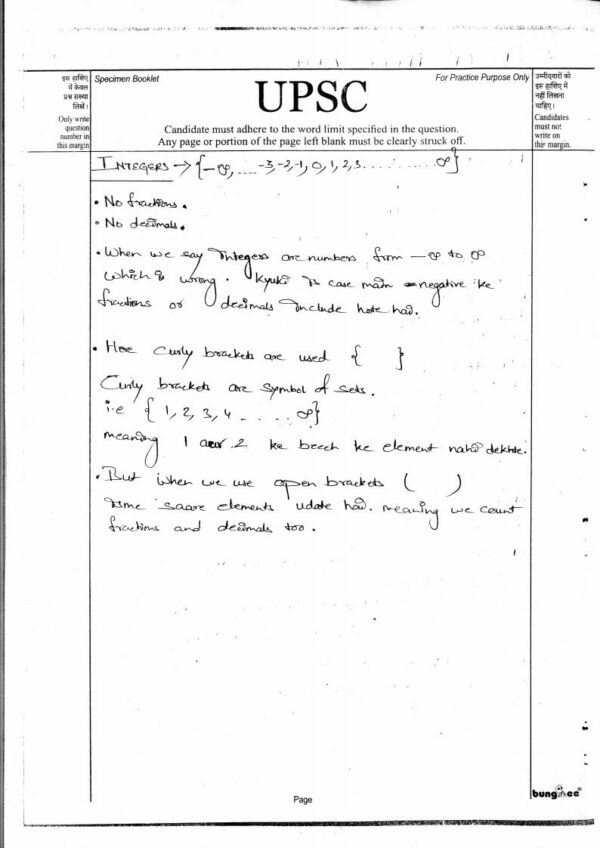 इस हाशिए
में केवल
प्रश्न संख्या
लिखें।
Only write
question
number in
this margin
Specimen Booklet
For Practice Purpose Only
UPSC
Candidate must adhere to the word limit specified in the question.
Any page or portion of the page left blank must be clearly struck off.
उम्मीदवारों को
इस हाशिए में
नहीं लिखना
चाहिए।
Candidates
must not
write on
this margin.
INTEGERS → {-∞, .... -3,-2,-1, 0, 1, 2, 3 ........ ∞}
• No fractions.
• No decimals.
• When we say Integers are numbers from -∞ to ∞
which is wrong. Kyuki is case main negative ke
fractions or decimals include hote hai.
• Here curly brackets are used { }
Curly brackets are symbol of sets.
i.e { 1, 2, 3, 4 ...... ∞}
meaning 1 aur 2 ke beech ke element nahi dekhte.
• But when we use open brackets ( )
isme saare elements hai. meaning we count
fractions and decimals too.
Page